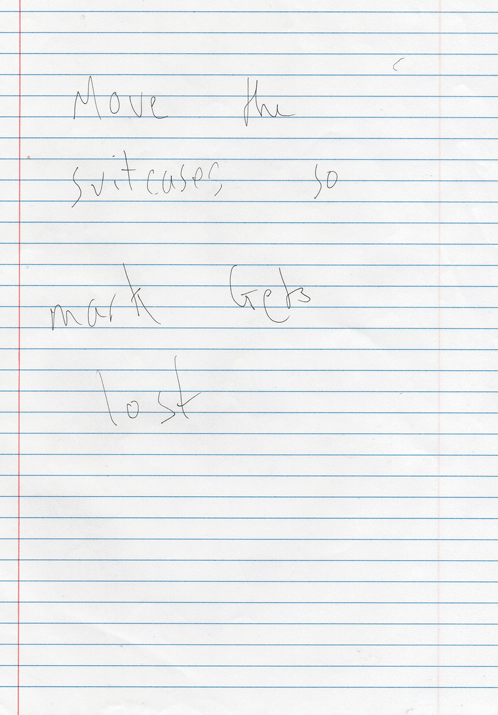 Move the
suitcases so
mark Gets
lost